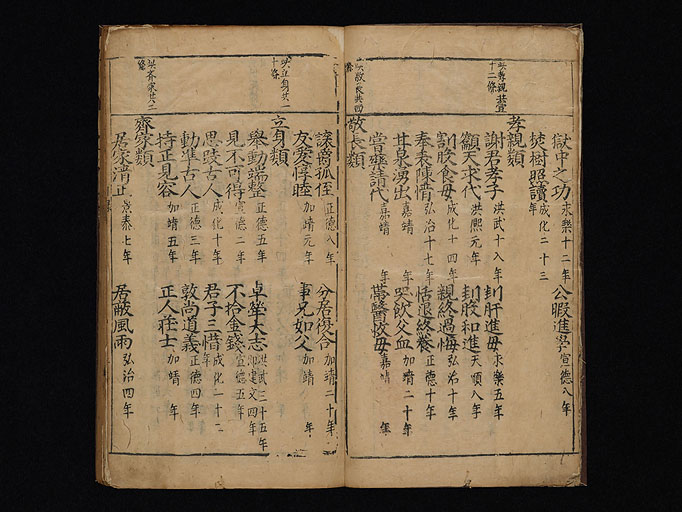 獄中之功 永樂十二年 公暇進學 宣德八年
焚樹照讀 成化二十三年
孝親類
謝君孝子 洪武十八年 刲肝進母 永樂五年
籲天求代 洪熙元年 刲股和進 天順八年
割股食母 成化十四年 親終過悔 弘治十年
奉表陳情 弘治十七年 恬退終養 正德十年
甘泉湧出 嘉靖 年 哭飲父血 加靖二十年
嘗藥請代 嘉靖 年 嘉靖 年
敬長類
讓爵孤侄 正德八年 分居復合 加靖二十年
友愛惇睦 加靖元年 事兄如父 加靖 年
立身類
舉動端整 正德五年 卓犖大志 洪武三十五年 即建文四年
見不可得 宣德二年 不拾金錢 宣德五年
思誠古人 成化十年 君子三惜 成化一十二年
動準古人 正德三年 敦尚道義 正德四年
持正見容 加靖五年 正人莊士 加靖 年
齊家類
居家清正 景泰七年 居蔽風雨 弘治四年